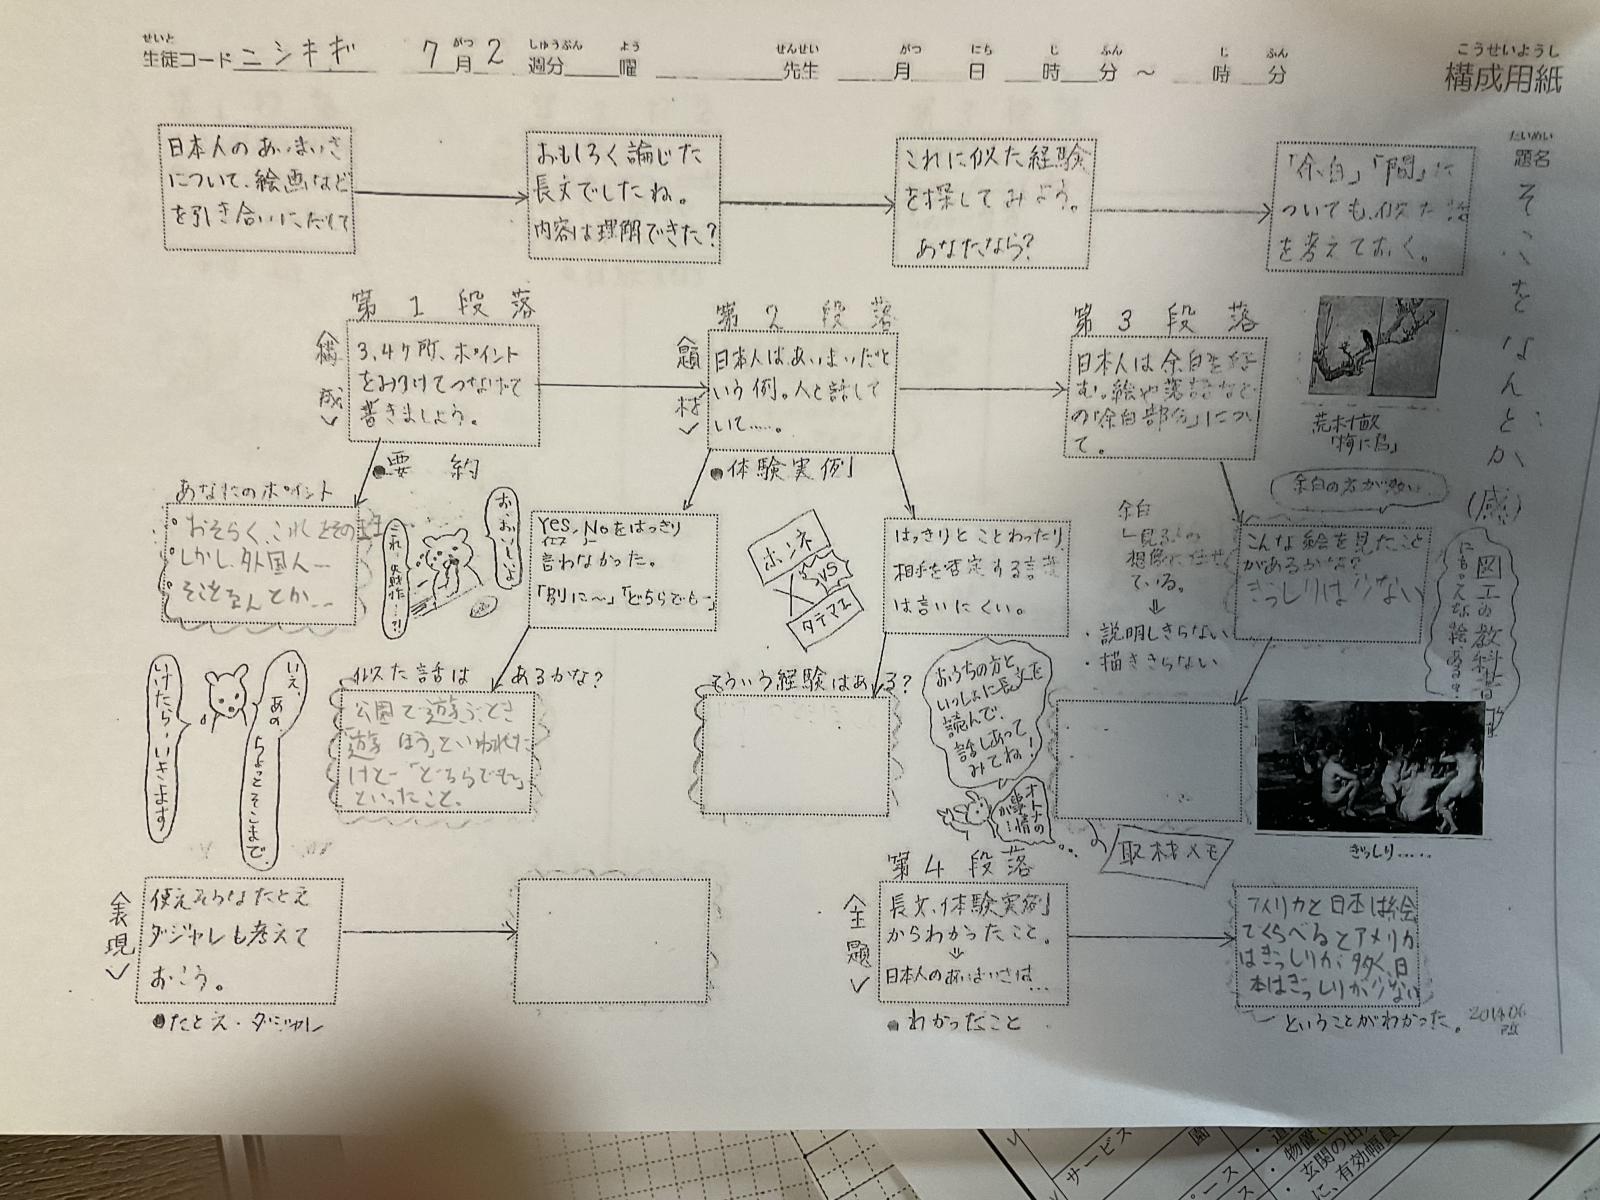 せいと
生徒コード ニシキギ
7月2週分 曜
がつ しゅうぶん よう
先生 月 日 時 分 ～ 時 分
せんせい がつ にち じ ふん じ ふん
こうせいようし
構成用紙
たいめい
題名
そこをなんとか
(感)
日本人のあいまいさ
について、絵画など
を引き合いにだして
おもしろく論じた
長文でしたね。
内容は理解できた?
これに似た経験
を探してみよう。
あなたなら?
「余白」「間」に
ついても、似た話
を考えておく。
第1段落
〈構成〉
3、4ヶ所、ポイント
をみつけてつなげて
書きましょう。
●要約
第2段落
〈題材〉
日本人はあいまいだと
いう例。人と話して
いて……。
●体験実例
第3段落
日本人は余白を好
む。絵や落語など
の「余白部分」につい
て。
荒木村敏
「梅に鳥」
余白の方が多い
あなたのポイント
おそらく、これ とその
しかし、外国人…
そこをなんとか…
これ…失敗作…?!
お、おいしいよ
Yes, Noをはっきり
イエス ノー
言わなかった。
「別に～」「どちらでも～」
ホンネ
VS
タテマエ
はっきりとことわったり、
相手を否定する言葉
は言いにくい。
余白
想像に任せ
ている。
⇓
・説明しきらない
・描ききらない
こんな絵を見たこと
があるかな?
ぎっしりは少ない
図工の教科書
にもこんな絵、ある?
いけたら、いきます
いえ、あの、ちょっとそこまで、
似た話は あるかな?
公園で遊ぶとき
「遊ぼう」といわれた
けど「どちらでも～」
といったこと。
そういう経験はある?
おうちの方と
いっしょに長文を
読んで、
話しあって
みてね!
オトナの
事情
が…
取材メモ
ぎっしり……
〈表現〉
使えそうなたとえ
ダジャレも考えて
おこう。
●たとえ・ダジャレ
第4段落
〈主題〉
長文、体験実例
からわかったこと。
⇓
日本人のあいまいさは…
●わかったこと
アメリカと日本は絵
でくらべるとアメリカ
はぎっしりが多く、日
本はぎっしりが少ない
ということがわかった。
2014.06
サービス
園
・物置
・玄関の出入
に、有効幅員